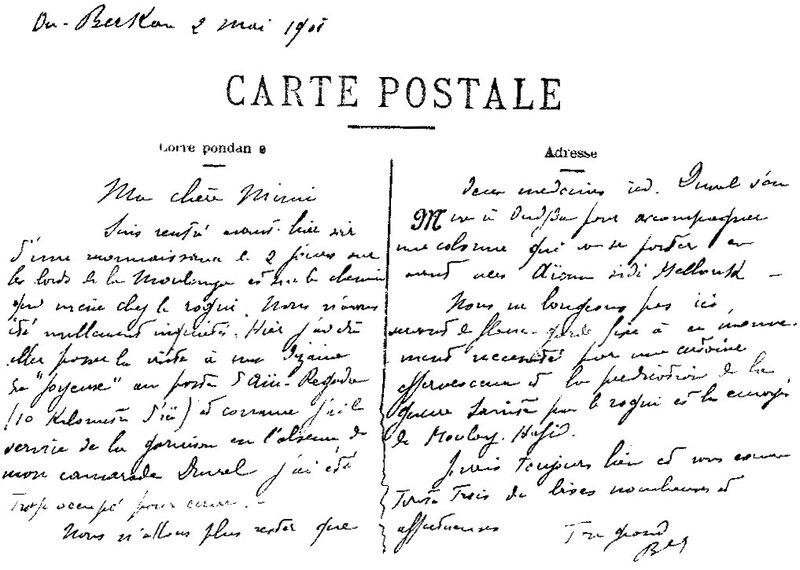 Berkan 2 mai 190
CARTE POSTALE
Corre pondan e
Adresse
Ma chère Mimi
Suis rentré avant-hier soir
d'une reconnaissance de 2 jours sur
les bords de la Moulouya et sur le chemin
qui mène chez le rogui. Nous n'avons
été nullement inquiétés. Hier j'ai dû
aller passer la visite à une dizaine
de "Joyeuse" au poste d'Aïn-Regada
(10 Kilomètres d'ici) et comme j'ai le
service de la garnison en l'absence de
mon camarade Duvel j'ai été
Trop occupé pour
Nous n'allons plus rester que
deux médecins ici. Duvel s'en
à Oudjda pour accompagner
une colonne qui va se porter en
avant vers Aïoun sidi Mellouk -
Nous ne bougeons pas ici
garde à ce mouve-
ment nécessité par une certaine
effervescence et la prédication de la
guerre Sainte par le rogui et les envoyés
de Mouley-Hafid.
Je vais toujours bien et vous
Toutes Trois de bises nombreuses et
affectueuses Ton grand